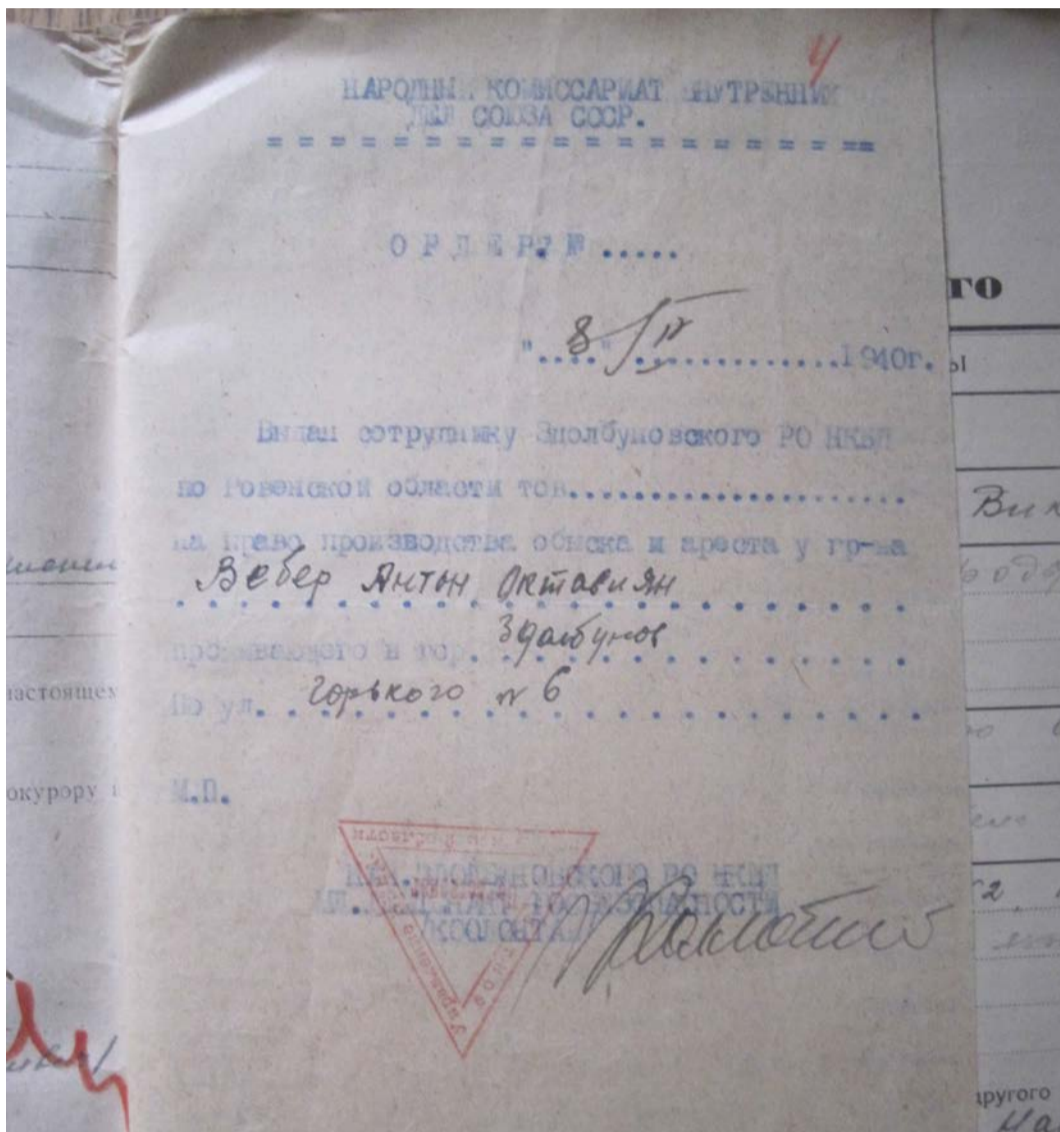 4
НАРОДНЫЙ КОМИССАРИАТ ВНУТРЕННИХ
ДЕЛ СОЮЗА СССР.
= = = = = = = = = = = = = = = = = = = = ==
О Р Д Е Р №.....
"..8.." IV.............1940г.
Выдан сотруднику Здолбуновского РО НКВД
по Ровенской области тов......................
на право производства обыска и ареста у гр-на
Вебер Антон Октавиян
проживающего в гор. Здолбунов
По ул. Горького № 6
М.П.
НАЧ.ЗДОЛБУНОВСКОГО РО НКВД
ГОСБЕЗОПАСНОСТИ
Управление
области
го
ы
Вик
настоящем
окурору
2
другого
На